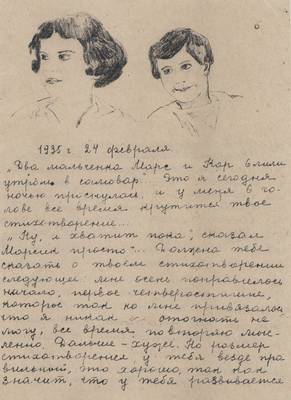 1935 г 24 февраля.
"Два мальченка Марс и Кар влили
утром в самовар". Это я сегодня
ночью проснулась, и у меня в го-
лове все время крутится твое
стихотворение...
"Ну, и хватит пока", сказал
Марсик просто"... Должна тебе
сказать о твоем стихотворении
следующее: мне очень понравилось
начало, первое четверостишие,
которое так ко мне привязалось
что я никак отогнать не
могу, все время повторяю мыс-
ленно. Дальше – хуже. Но размер
стихотворения у тебя везде пра-
вильный, это хорошо, так как
значит, что у тебя развивается